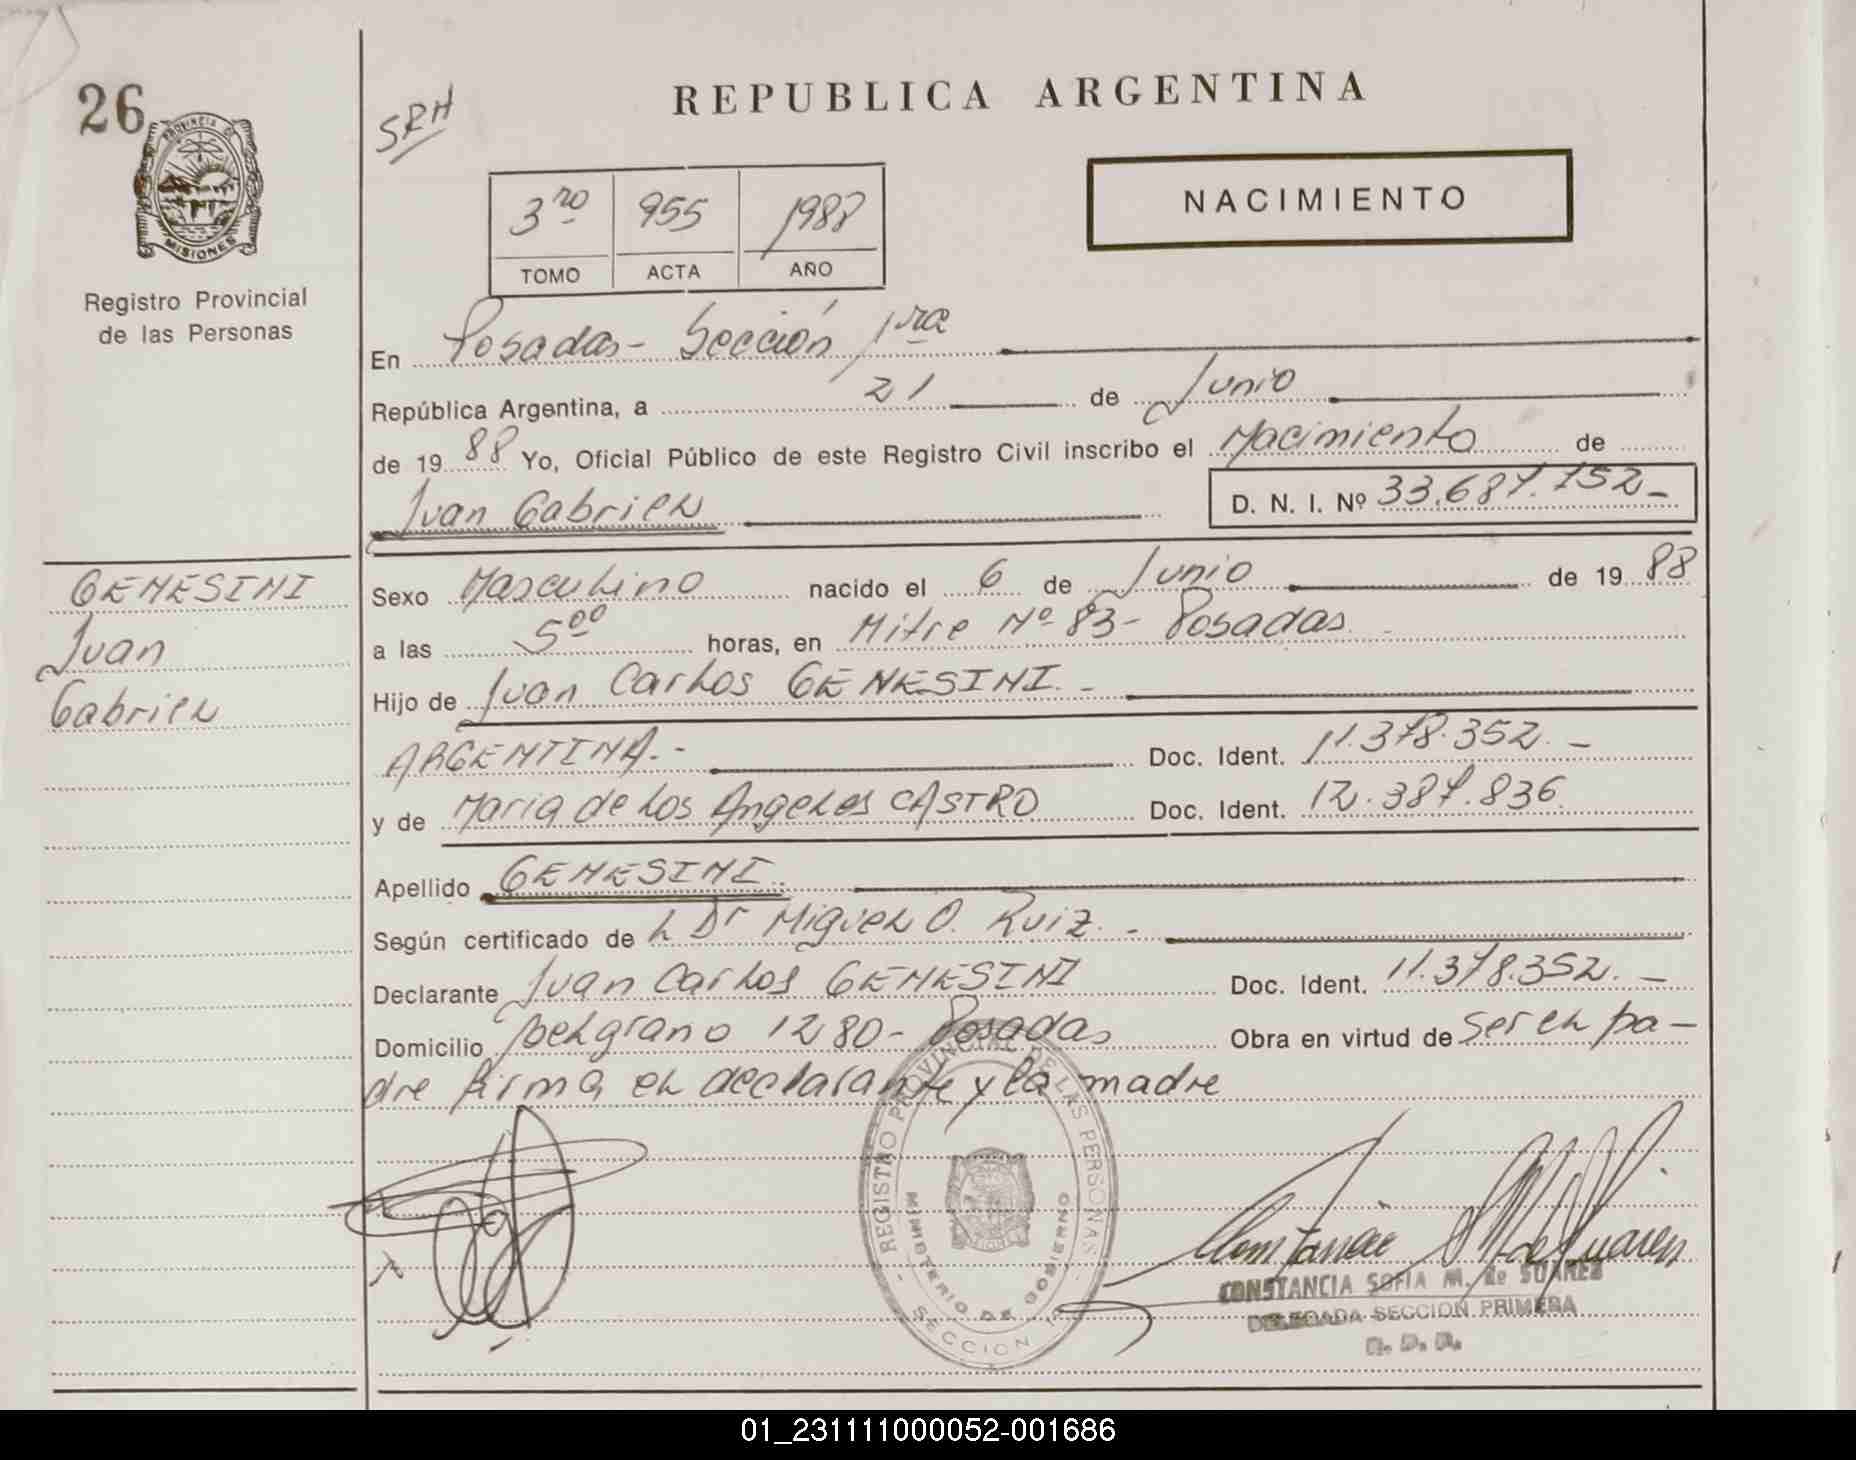 26
PROVINCIA DE
MISIONES
Registro Provincial
de las Personas
SRH
REPUBLICA ARGENTINA
3ro 955 1988
TOMO ACTA AÑO
NACIMIENTO
En Posadas- Sección 1ra
República Argentina, a 21 de Junio
de 19 88 Yo, Oficial Público de este Registro Civil inscribo el Nacimiento de
Juan Gabriel D. N. I. Nº 33.687.752-
GENESINI
Juan
Gabriel
Sexo Masculino nacido el 6 de Junio de 19 88
a las 5⁰⁰ horas, en Mitre Nº 83- Posadas.-
Hijo de Juan Carlos GENESINI.-
ARGENTINA.- Doc. Ident. 11.378.352.-
y de Maria de los Angeles CASTRO Doc. Ident. 12.387.836
Apellido GENESINI.
Según certificado de l Dr Miguel O. Ruiz.-
Declarante Juan Carlos GENESINI Doc. Ident. 11.378.352.-
Domicilio Belgrano 1280- Posadas Obra en virtud de ser el pa-
dre firma el declarante y la madre
REGISTRO PROVINCIAL DE LAS PERSONAS
MINISTERIO DE GOBIERNO
SECCION 1ª
CONSTANCIA SOFIA M. de SUAREZ
DELEGADA SECCION PRIMERA
01_231111000052-001686